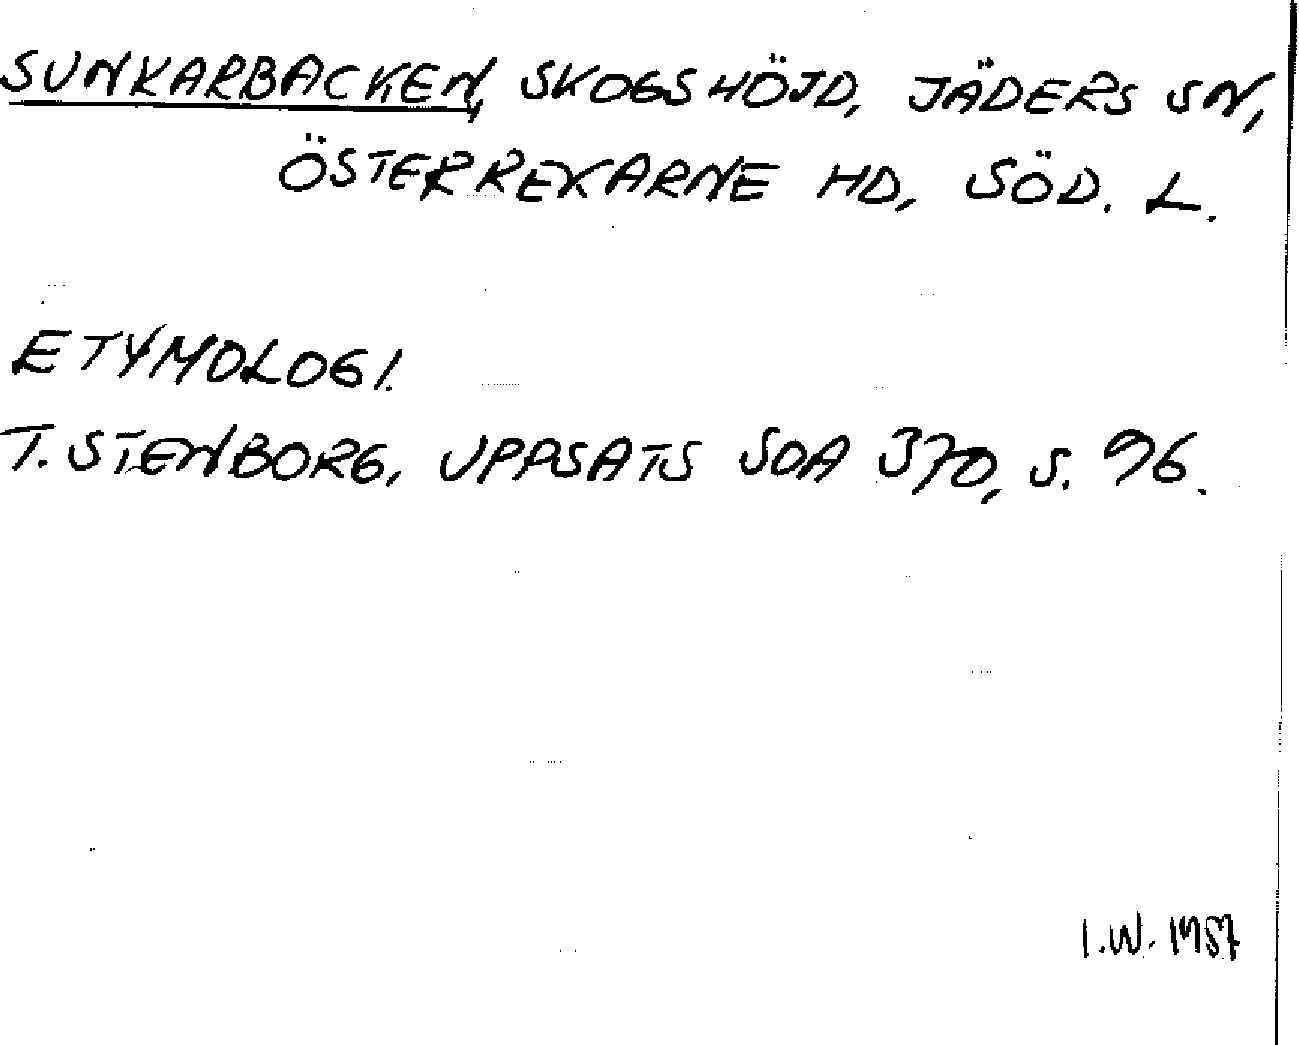 SUNKARBACKEN, SKOGSHÖJD, JÄDERS SN,
ÖSTERREKARNE HD, SÖD. L.
ETYMOLOGI.
T. STENBORG, UPPSATS SOA 370, S. 96.
I.W. 1957